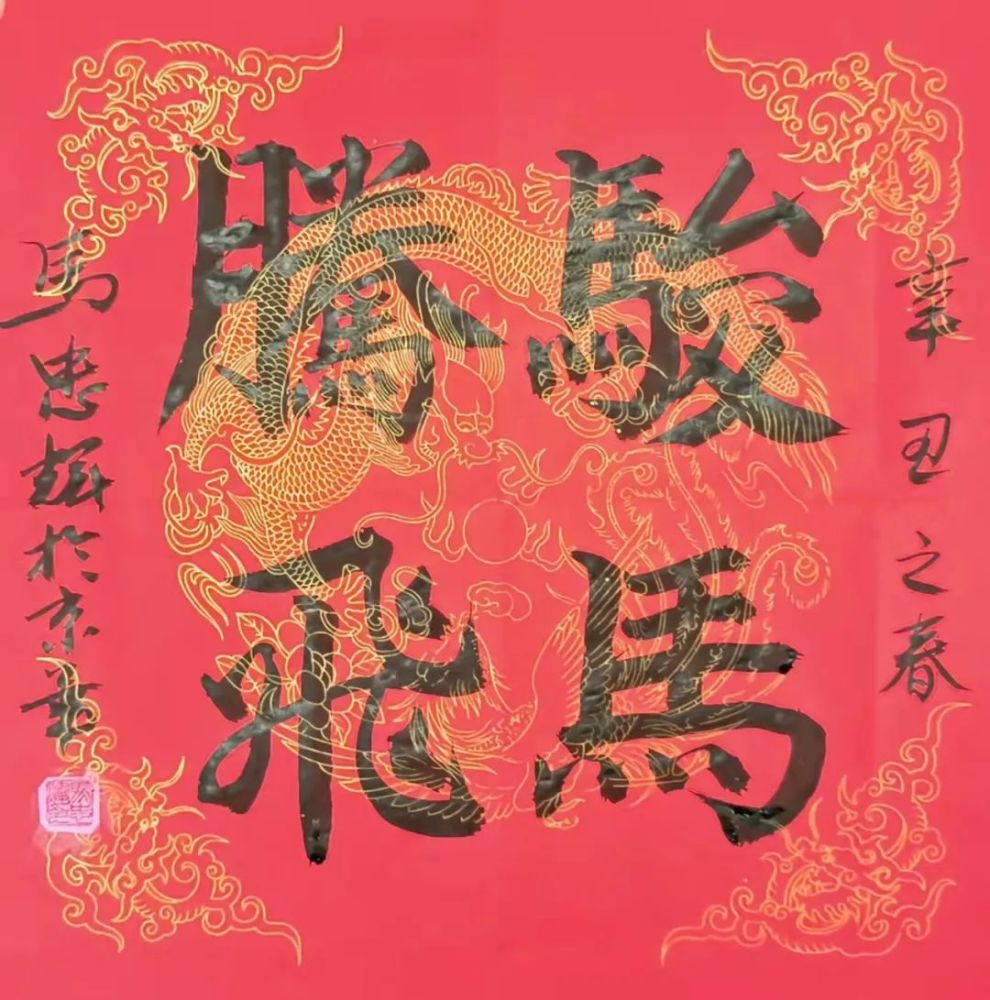 辛丑之春
駿馬
騰飛
馬忠輝於京華